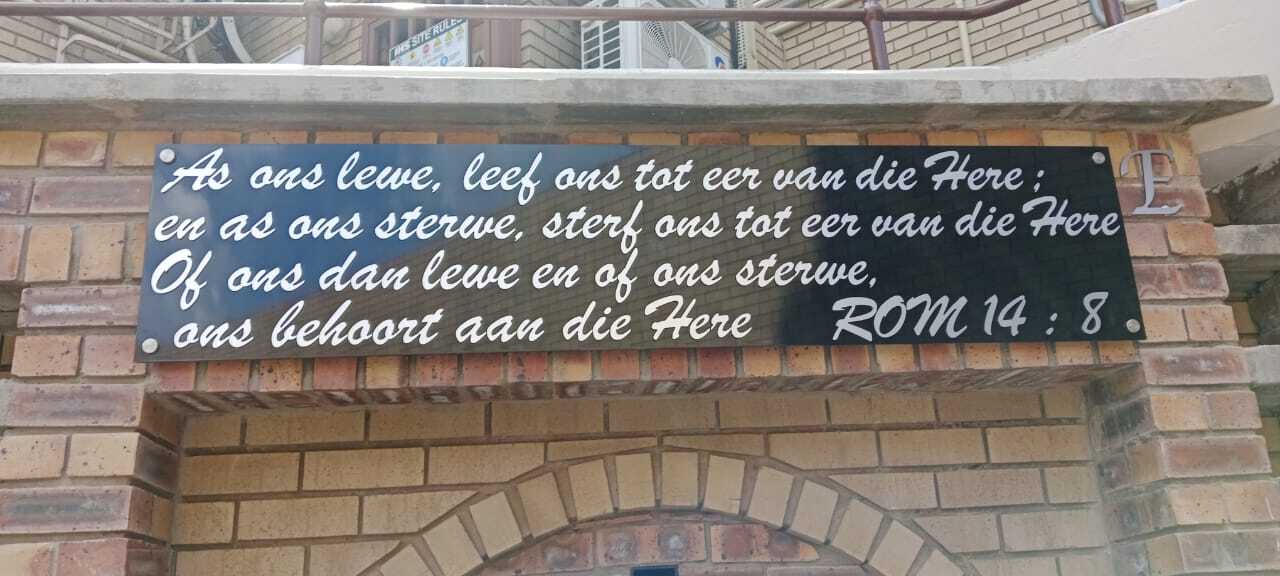 IHS SITE RULES
As ons lewe, leef ons tot eer van die Here;
en as ons sterwe, sterf ons tot eer van die Here
Of ons dan lewe en of ons sterwe,
ons behoort aan die Here ROM 14 : 8
E